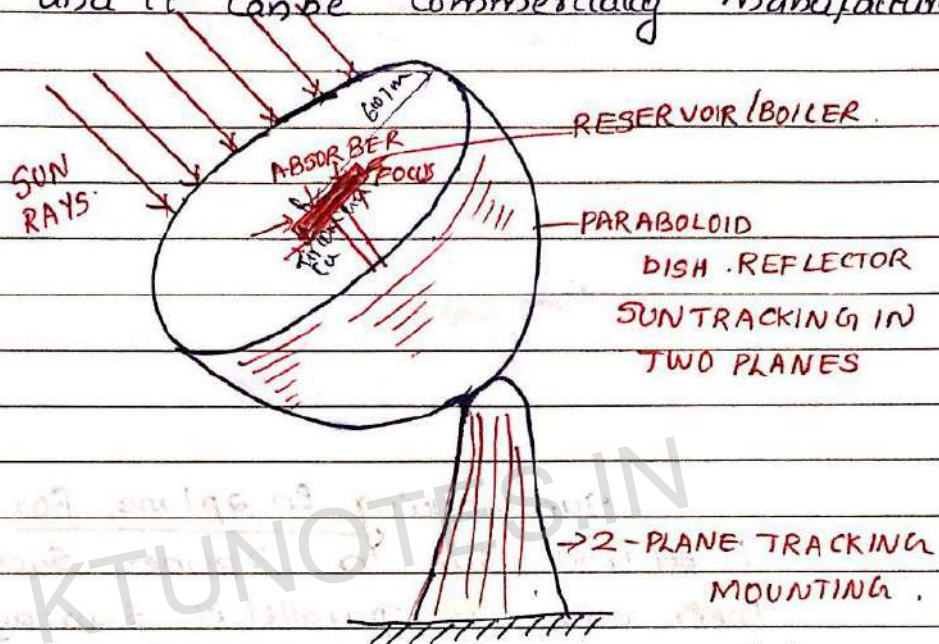 and it can be commercially manufactur
SUN
RAYS.
6.7m
ABSORBER
FOCUS
Cu
RESERVOIR/BOILER
PARABOLOID
DISH. REFLECTOR
SUN TRACKING IN
TWO PLANES
2-PLANE TRACKING
MOUNTING.
KTUNOTES.IN